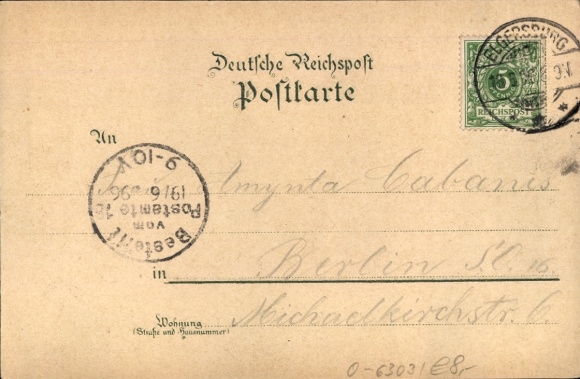 Deutsche Reichspost
Postkarte
ELGERSBURG
5
REICHSPOST
An
Amynta Cabanis
Bestellt
vom
Postamte 16
19/6 96
9-10V
in Berlin S.O. 16
Michaelkirchstr. 6.
Wohnung
(Straße und Hausnummer)
0-63031 €8,-